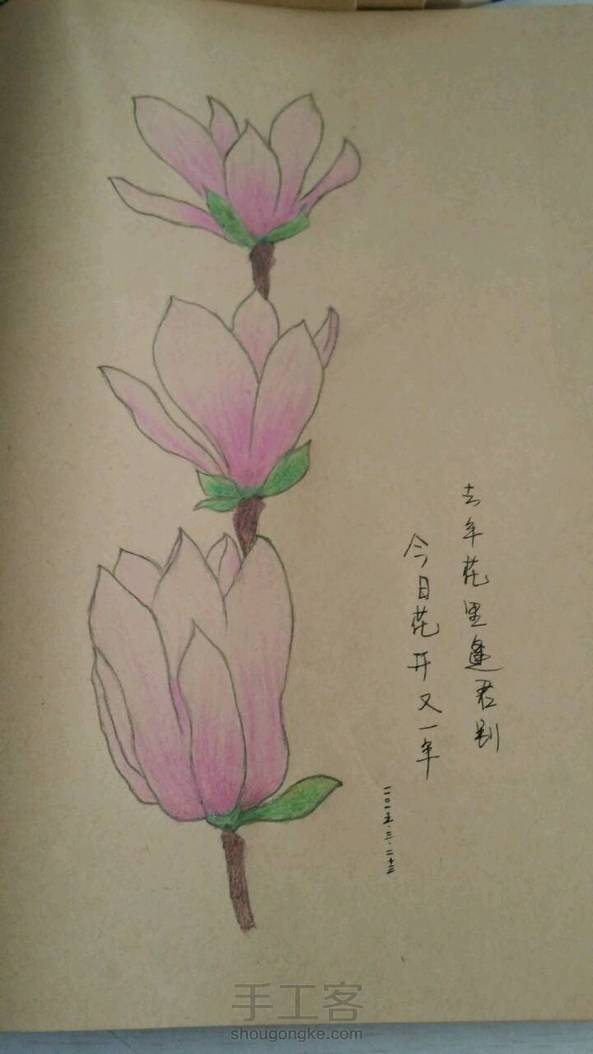 去年花里逢君别
今日花开又一年
二〇一五.三.二十三
手工客
shougongke.com